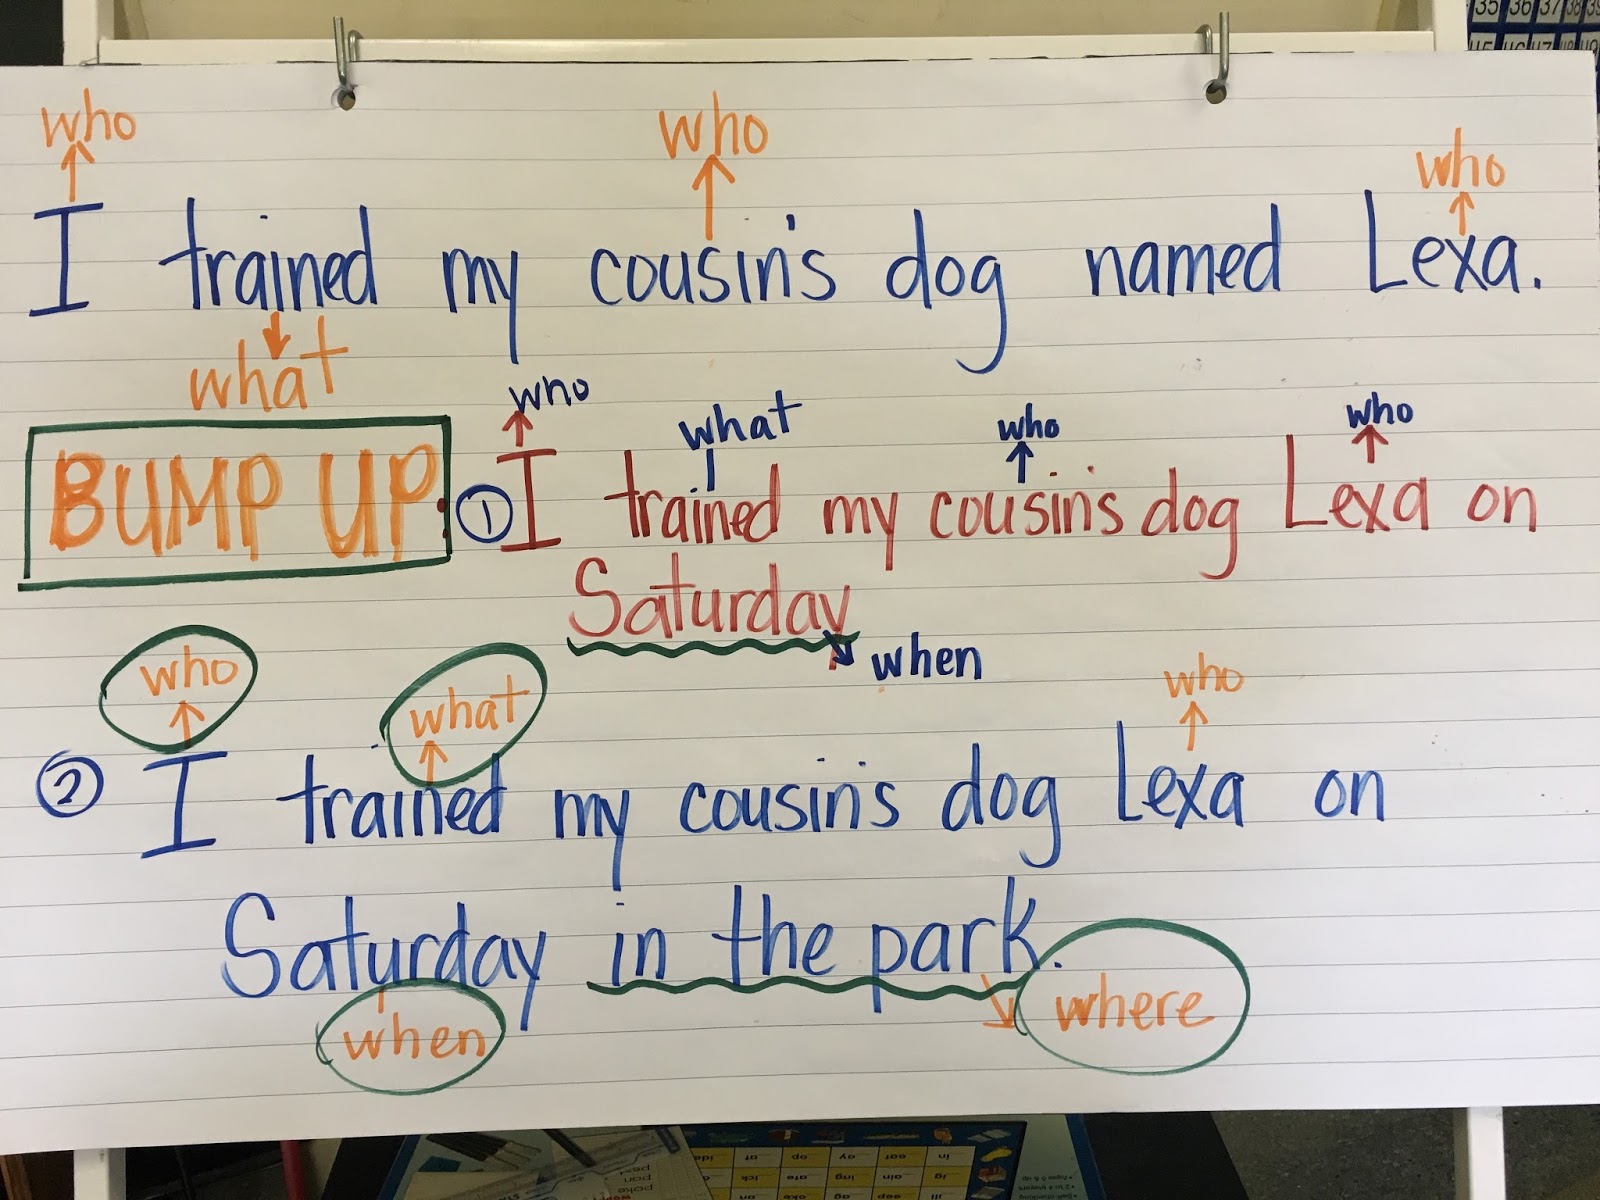 35 36 37 38 39
who who who
I trained my cousin's dog named Lexa.
what
who what who who
BUMP UP: ① I trained my cousin's dog Lexa on
Saturday
when
who what who
② I trained my cousin's dog Lexa on
Saturday in the park.
when where